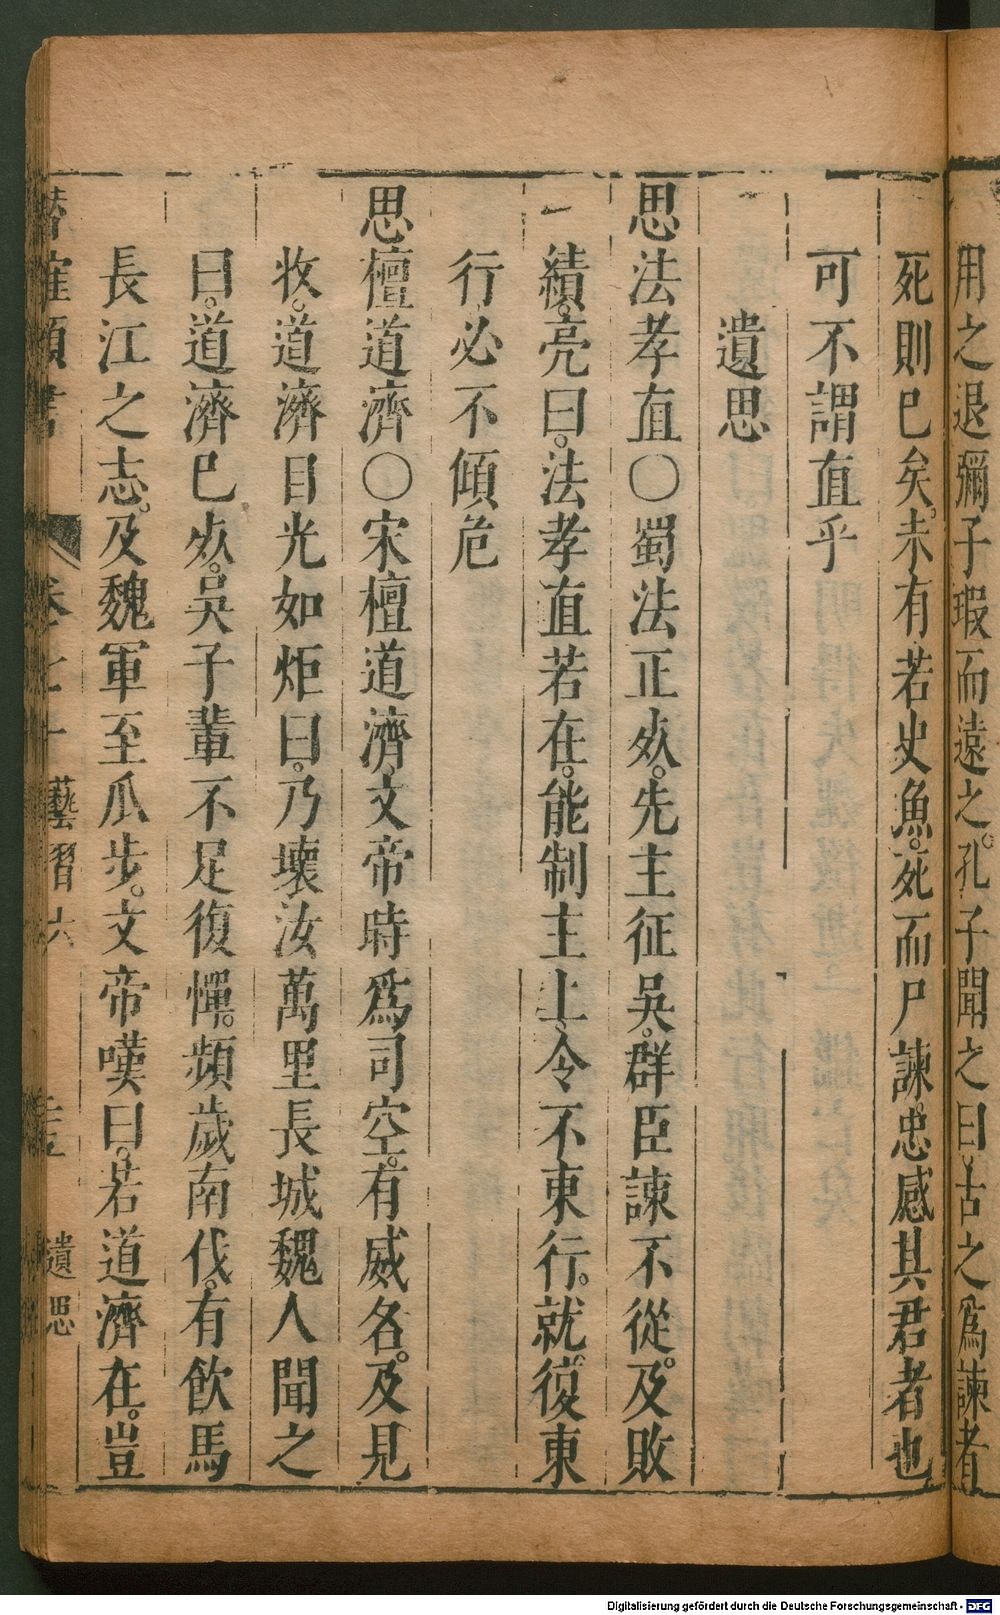 用之退彌子瑕而遠之。孔子聞之曰。古之爲諫者
死則已矣。未有若史魚。死而尸諫。忠感其君者也
可不謂直乎
遺思
思法孝直○蜀法正歿。先主征吳。群臣諫不從。及敗
績。亮曰。法孝直若在。能制主上。令不東行。就復東
行必不傾危
思檀道濟○宋檀道濟。文帝時爲司空。有威名。及見
收。道濟目光如炬曰。乃壞汝萬里長城魏人聞之
曰。道濟已歿。吳子輩不足復憚。頻歲南伐。有飲馬
長江之志。及魏軍至瓜步。文帝嘆曰。若道濟在。豈
卷七十 藝習六 遺思
Digitalisierung gefördert durch die Deutsche Forschungsgemeinschaft - DFG